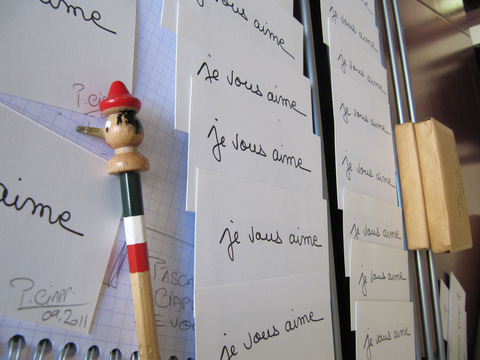 aime
P.Cia
aime
P.CIAP.
09.2011
PASCA
CIAP
je vous aime
je vous aime
je vous aime
je vous aime
je vous aime
je vous aime
je vous aime
je vous aime
je vous aime
je vous aime
je vous aime
je vous aime